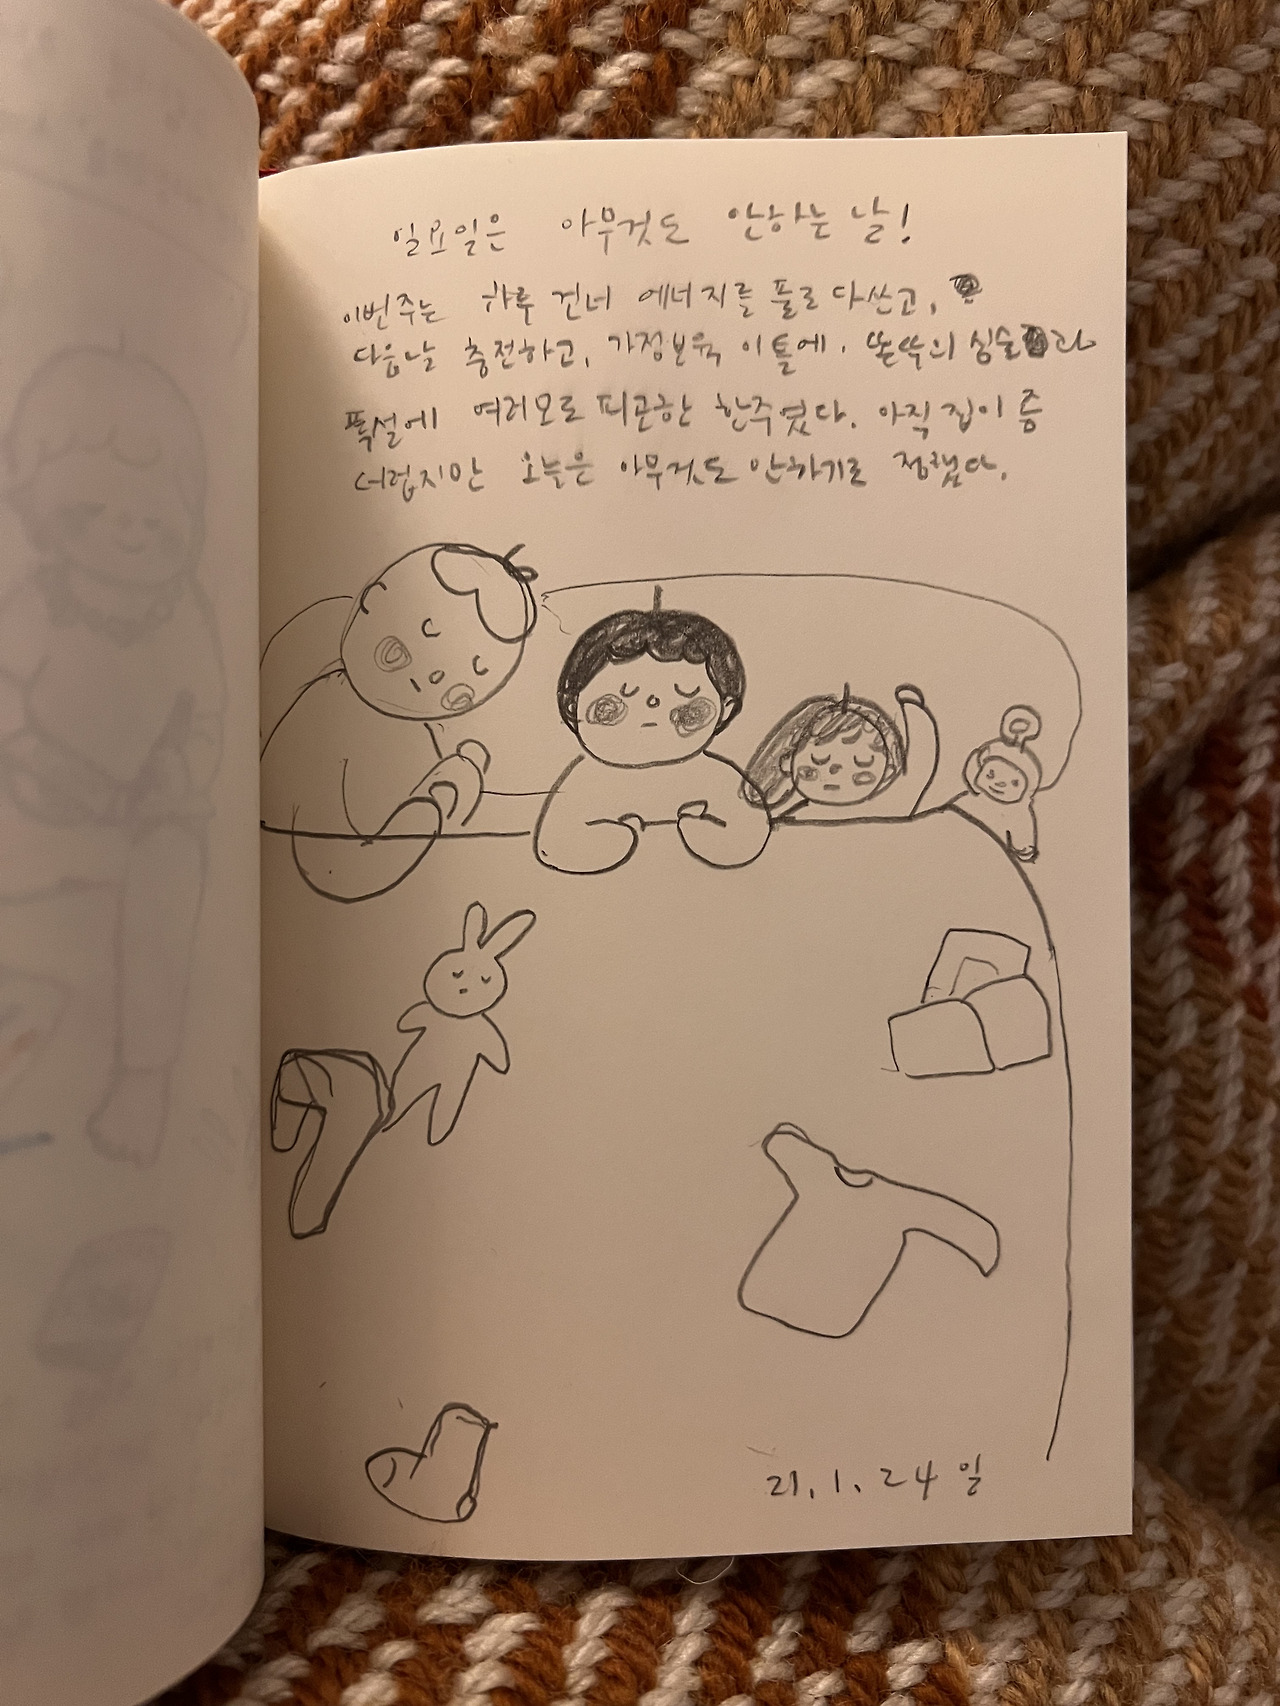 일요일은 아무것도 안하는 날!
이번주는 하루 건너 에너지를 풀로 다쓰고,
다음날 충전하고, 가정보육 이틀에. 쏜쑥의 심술과
폭설에 여러모로 피곤한 한주였다. 아직 집이 좀
더럽지만 오늘은 아무것도 안하기로 정했다.
21. 1. 24 일